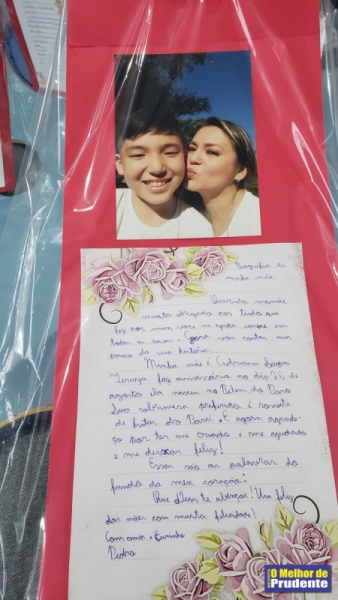 Biografia da
minha mãe.
Querida mamãe
muito obrigado por tudo que
fez por mim, você me ajuda sempre em
todas as coisas. Agora vou contar um
pouco da sua história...
Minha mãe é
faz aniversário no dia 26 de
agosto ela nasceu no Belém do Pará
Sua sobremesa preferida é sorvete
de frutas do Pará. E agora agrade-
ço por ter me criado e me ajudado
e me deixar feliz!
Essas são as palavras do
fundo do meu coração:
Que Deus te abençoe! Um feliz
dia das mães com muita felicidade!
Com amor e Carinho
Pedro
O Melhor de
Prudente